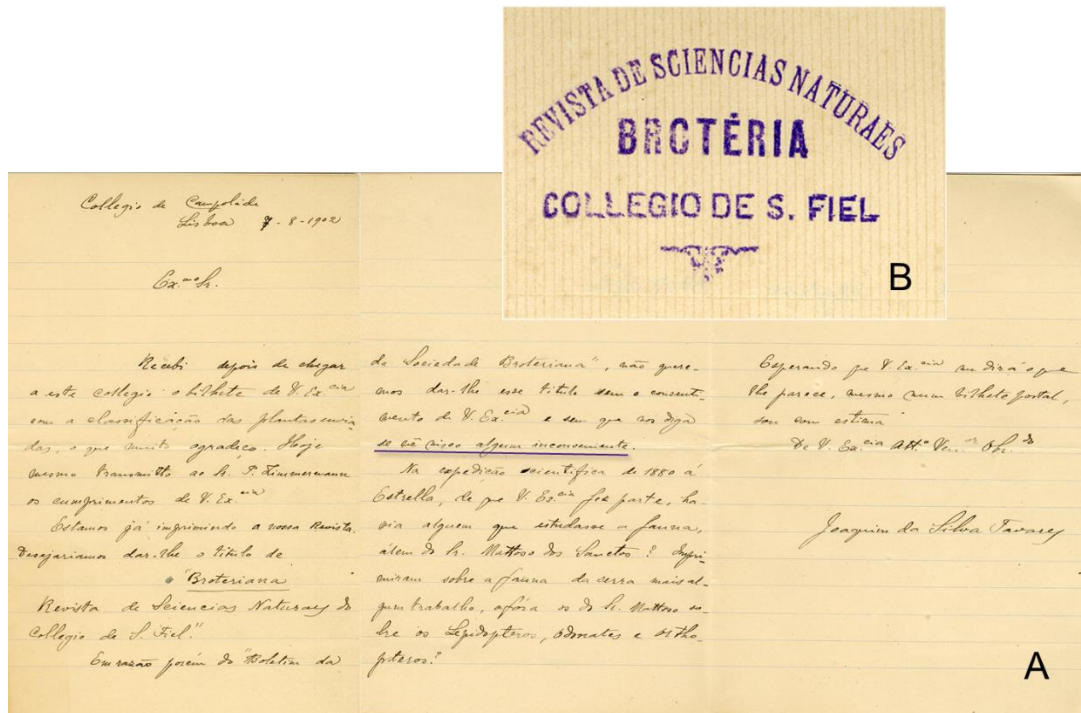 REVISTA DE SCIENCIAS NATURAES
BROTÉRIA
COLLEGIO DE S. FIEL
B
Collegio de Campolide
Lisboa 7-8-1902
Ex.mo Sr.
Recebi depois de chegar
a este collegio o bilhete de V. Ex.cia
com a classificação das plantas envia-
das, o que muito agradeço. Hoje
mesmo transmitto ao Sr. P. Zimmermann
os cumprimentos de V. Ex.cia
Estamos já imprimindo a nossa Revista.
Desejariamos dar-lhe o titulo de
"Broteriana
Revista de Sciencias Naturaes do
Collegio de S. Fiel."
Em razão porém do "Boletim da
da Sociedade Broteriana", não quere-
mos dar-lhe esse titulo sem o consenti-
mento de V. Ex.cia e sem que nos diga
se vê nisso algum inconveniente.
Na expedição scientifica de 1880 á
Estrella, de que V. Ex.cia fez parte, ha-
via alguem que estudasse a fauna,
álem do Sr. Mattoso dos Sanctos? Impri-
miram sobre a fauna da serra mais al-
gum trabalho, afóra os do Sr. Mattoso so-
bre os Lepidopteros, odonates e ortho-
pteros?
Esperando que V. Ex.cia me dirá o que
lhe parece, mesmo num bilhete postal,
sou com estima
De V. Ex.cia Att.o Ven.or Obr.do
Joaquim da Silva Tavares
A